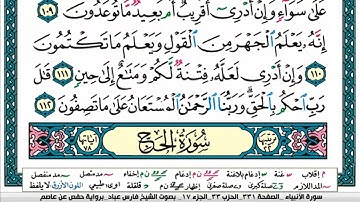 عَلَىٰ سَوَآءٍ وَإِنْ أَدْرِىٓ أَقَرِيبٌ أَم بَعِيدٌ مَّا تُوعَدُونَ ١٠٩
إِنَّهُۥ يَعْلَمُ ٱلْجَهْرَ مِنَ ٱلْقَوْلِ وَيَعْلَمُ مَا تَكْتُمُونَ ١١٠
وَإِنْ أَدْرِى لَعَلَّهُۥ فِتْنَةٌ لَّكُمْ وَمَتَٰعٌ إِلَىٰ حِينٍ ١١١ قَٰلَ
رَبِّ ٱحْكُم بِٱلْحَقِّ وَرَبُّنَا ٱلرَّحْمَٰنُ ٱلْمُسْتَعَانُ عَلَىٰ مَا تَصِفُونَ ١١٢
سُورَةُ الْحَجِّ
آياتها ٧٨
سورة الأنبياء _ الصفحة ٣٣١_ الحزب ٣٣_ الجزء ١٧_ بصوت الشيخ فارس عباد_ برواية حفص عن عاصم